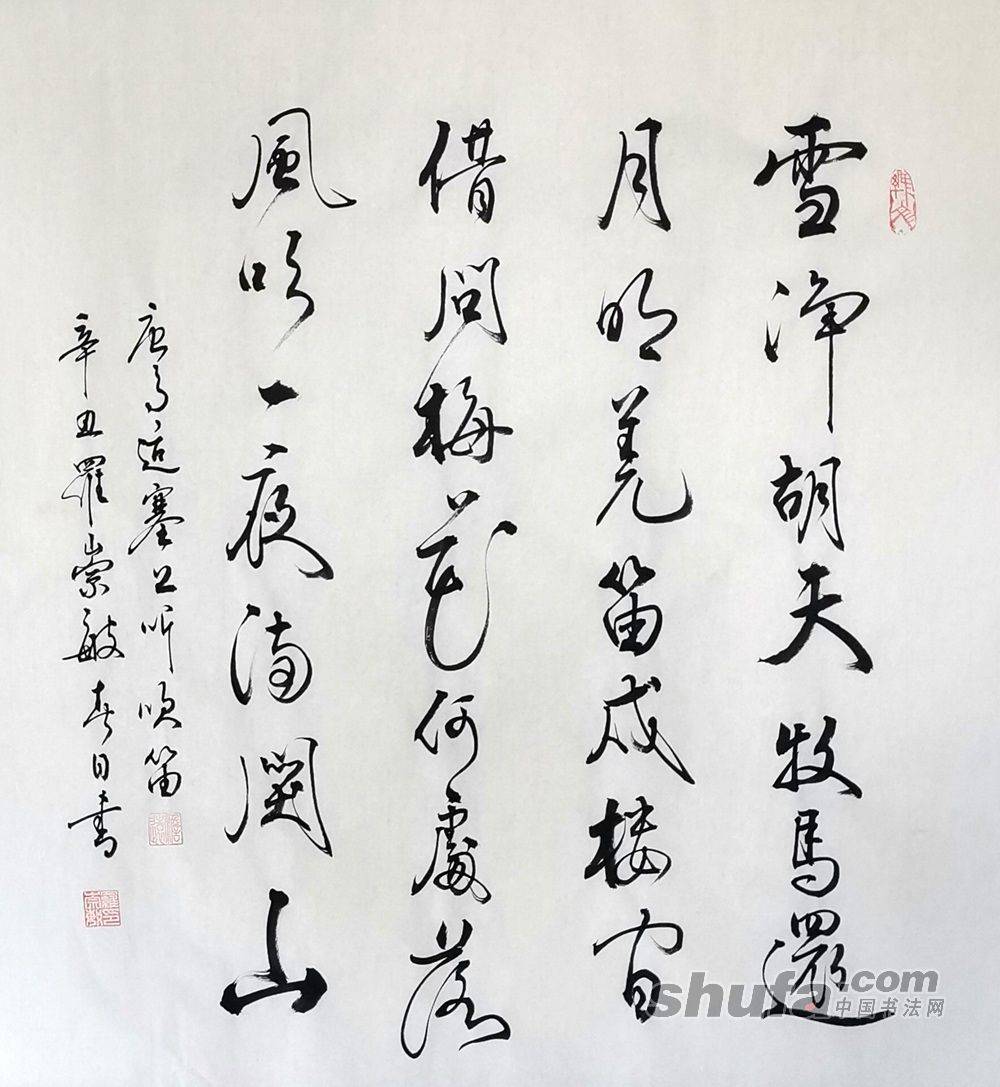 雪淨胡天牧馬還
月明羌笛戍樓間
借問梅花何處落
風吹一夜滿關山
唐高適塞上听吹笛
辛丑羅崇敏春日書
shufa.com
中国书法网